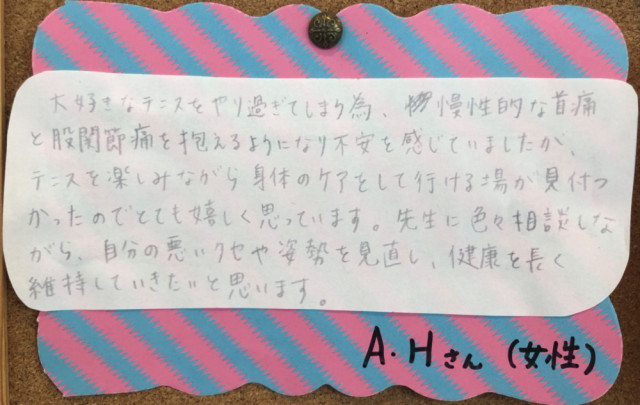 大好きなテニスをやり過ぎてしまう為、慢性的な首痛
と股関節痛を抱えるようになり不安を感じていましたが、
テニスを楽しみながら身体のケアをして行ける場が見付つ
かったのでとても嬉しく思っています。先生に色々相談しな
がら、自分の悪いクセや姿勢を見直し、健康を長く
維持していきたいと思います。
A・Hさん（女性）